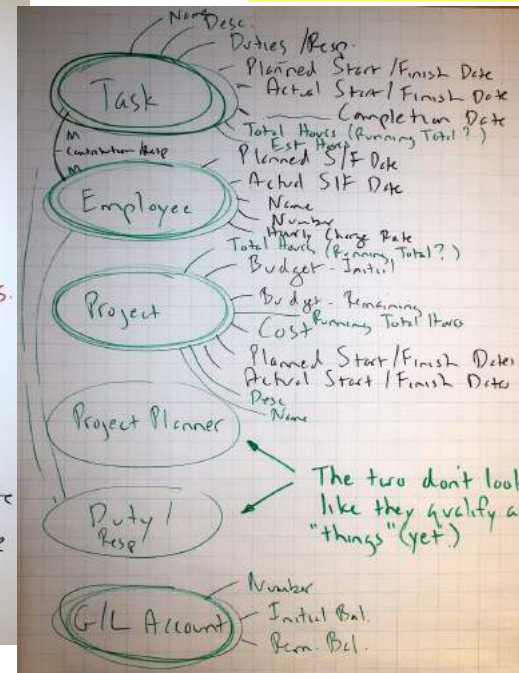 Name
Desc.
Duties / Resp.
Planned Start / Finish Date
Actual Start / Finish Date
Completion Date
Total Hours (Running Total?)
Est Hours
Task
M
Contribution / Resp
M
Planned S/F Date
Actual S/F Date
Name
Number
Hourly Charge Rate
Employee
Total Hours (Running Total?)
Budget - Initial
Budget - Remaining
Running Total Hours
Cost
Planned Start / Finish Dates
Actual Start / Finish Dates
Desc
Name
Project
s.
Project Planner
The two don't look
like they qualify a
"things" (yet.)
Duty /
Resp
Number
Initial Bal.
Rem. Bal.
G/L Account